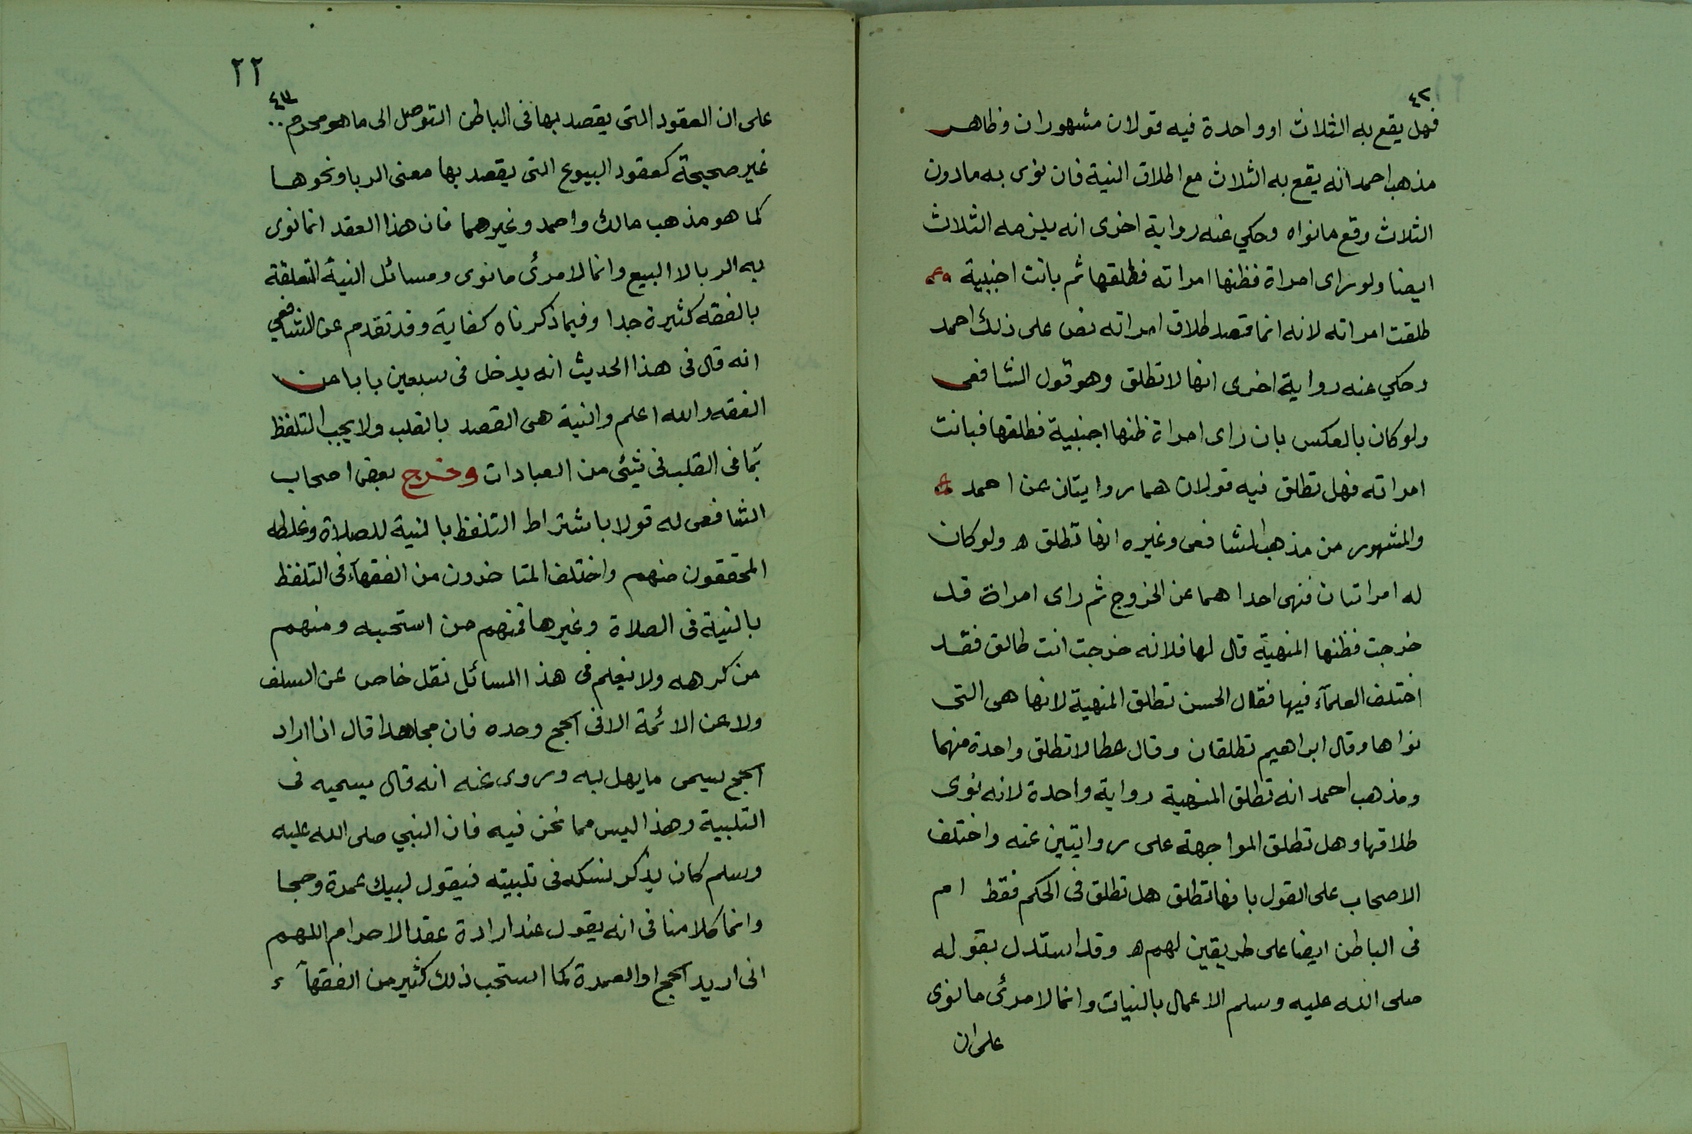 ٤٢
فهل يقع به الثلاث او واحدة فيه قولان مشهوران وظاهر
مذهب احمد انه يقع به الثلاث مع اطلاق النية فان نوى به مادون
الثلاث وقع مانواه وحكي عنه رواية اخرى انه يلزمه الثلاث
ايضا ولو راى امراة فظنها امراته فطلقها ثم بانت اجنبية
طلقت امراته لانه انما قصد طلاق امراته نص على ذلك احمد
وحكي عنه رواية اخرى انها لا تطلق وهو قول الشافعى
ولو كان بالعكس بان راى امراة ظنها اجنبية فطلقها فبانت
امراته فهل تطلق فيه قولان هما روايتان عن احمد
والمشهور من مذهب الشافعى وغيره انها تطلق ه ولو كان
له امراتان فنهى احداهما عن الخروج ثم راى امراة قد
خرجت فظنها المنهية قال لها فلانه خرجت انت طالق فقد
اختلف العلمآء فيها فقال الحسن تطلق المنهية لانها هى التى
نواها وقال ابراهيم تطلقان وقال عطا لا تطلق واحدة منهما
ومذهب احمد انه تطلق المنهية رواية واحدة لانه نوى
طلاقها وهل تطلق المواجهة على روايتين عنه واختلف
الاصحاب على القول بانها تطلق هل تطلق فى الحكم فقط ام
فى الباطن ايضا على طريقين لهم ه وقد استدل بقوله
صلى الله عليه وسلم الاعمال بالنيات وانما لامرئ مانوى
على ان
٢٢
٤٣
على ان العقود التى يقصد بها فى الباطن التوصل الى ما هو محرم
غير صحيحة كعقود البيوع التى يقصد بها معنى الربا ونحوها
كما هو مذهب مالك واحمد وغيرهما فان هذا العقد انما نوى
به الربا لا البيع وانما لامرئ مانوى ومسائل النية المتعلقة
بالفقه كثيرة جدا وفيما ذكرناه كفاية وقد تقدم عن الشافعي
انه قال فى هذا الحديث انه يدخل فى سبعين بابا من
الفقه والله اعلم والنية هى القصد بالقلب ولا يجب التلفظ
بما فى القلب فى شيئى من العبادات وخرج بعض اصحاب
الشافعى له قولا باشتراط التلفظ بالنية للصلاة وغلطه
المحققون منهم واختلف المتاخرون من الفقهآء فى التلفظ
بالنية فى الصلاة وغيرها فمنهم من استحبه ومنهم
من كرهه ولا نعلم فى هذا المسائل نقل خاص عن السلف
ولا عن الائمة الا فى الحج وحده فان مجاهدا قال اذا اراد
الحج يسمى ما يهل به وروى عنه انه قال يسميه فى
التلبية وهذا ليس مما نحن فيه فان النبي صلى الله عليه
وسلم كان يذكر نسكه فى تلبيته فيقول لبيك عمرة وحجا
وانما كلامنا فى انه يقول عند ارادة عقد الاحرام اللهم
انى اريد الحج او العمرة كما استحب ذلك كثير من الفقهآء